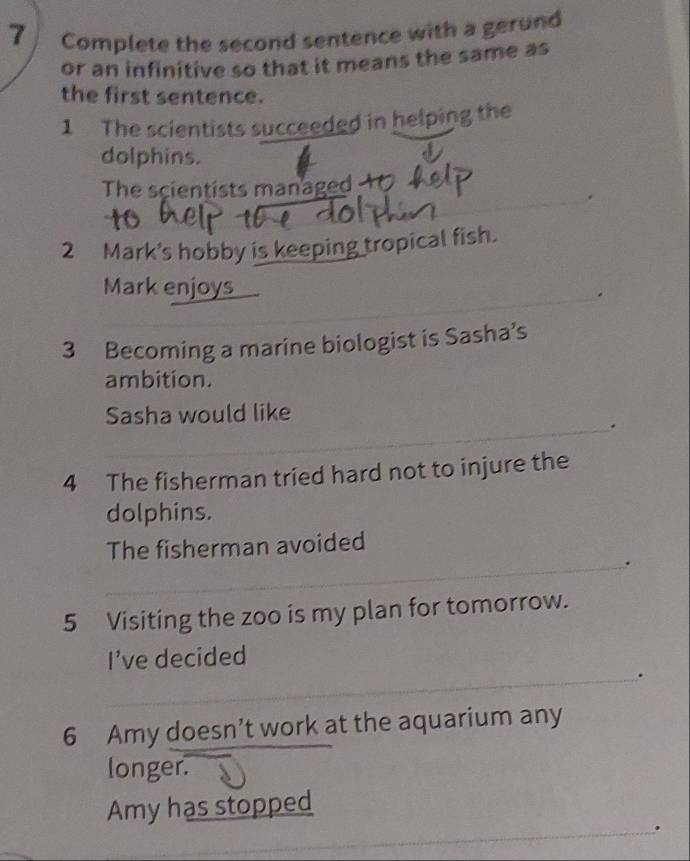 7 Complete the second sentence with a gerund
or an infinitive so that it means the same as
the first sentence.
1 The scientists succeeded in helping the
dolphins.
The scientists managed to help
to help the dolphin .
2 Mark's hobby is keeping tropical fish.
Mark enjoys
.
3 Becoming a marine biologist is Sasha's
ambition.
Sasha would like
.
4 The fisherman tried hard not to injure the
dolphins.
The fisherman avoided
.
5 Visiting the zoo is my plan for tomorrow.
I've decided
.
6 Amy doesn't work at the aquarium any
longer.
Amy has stopped
.